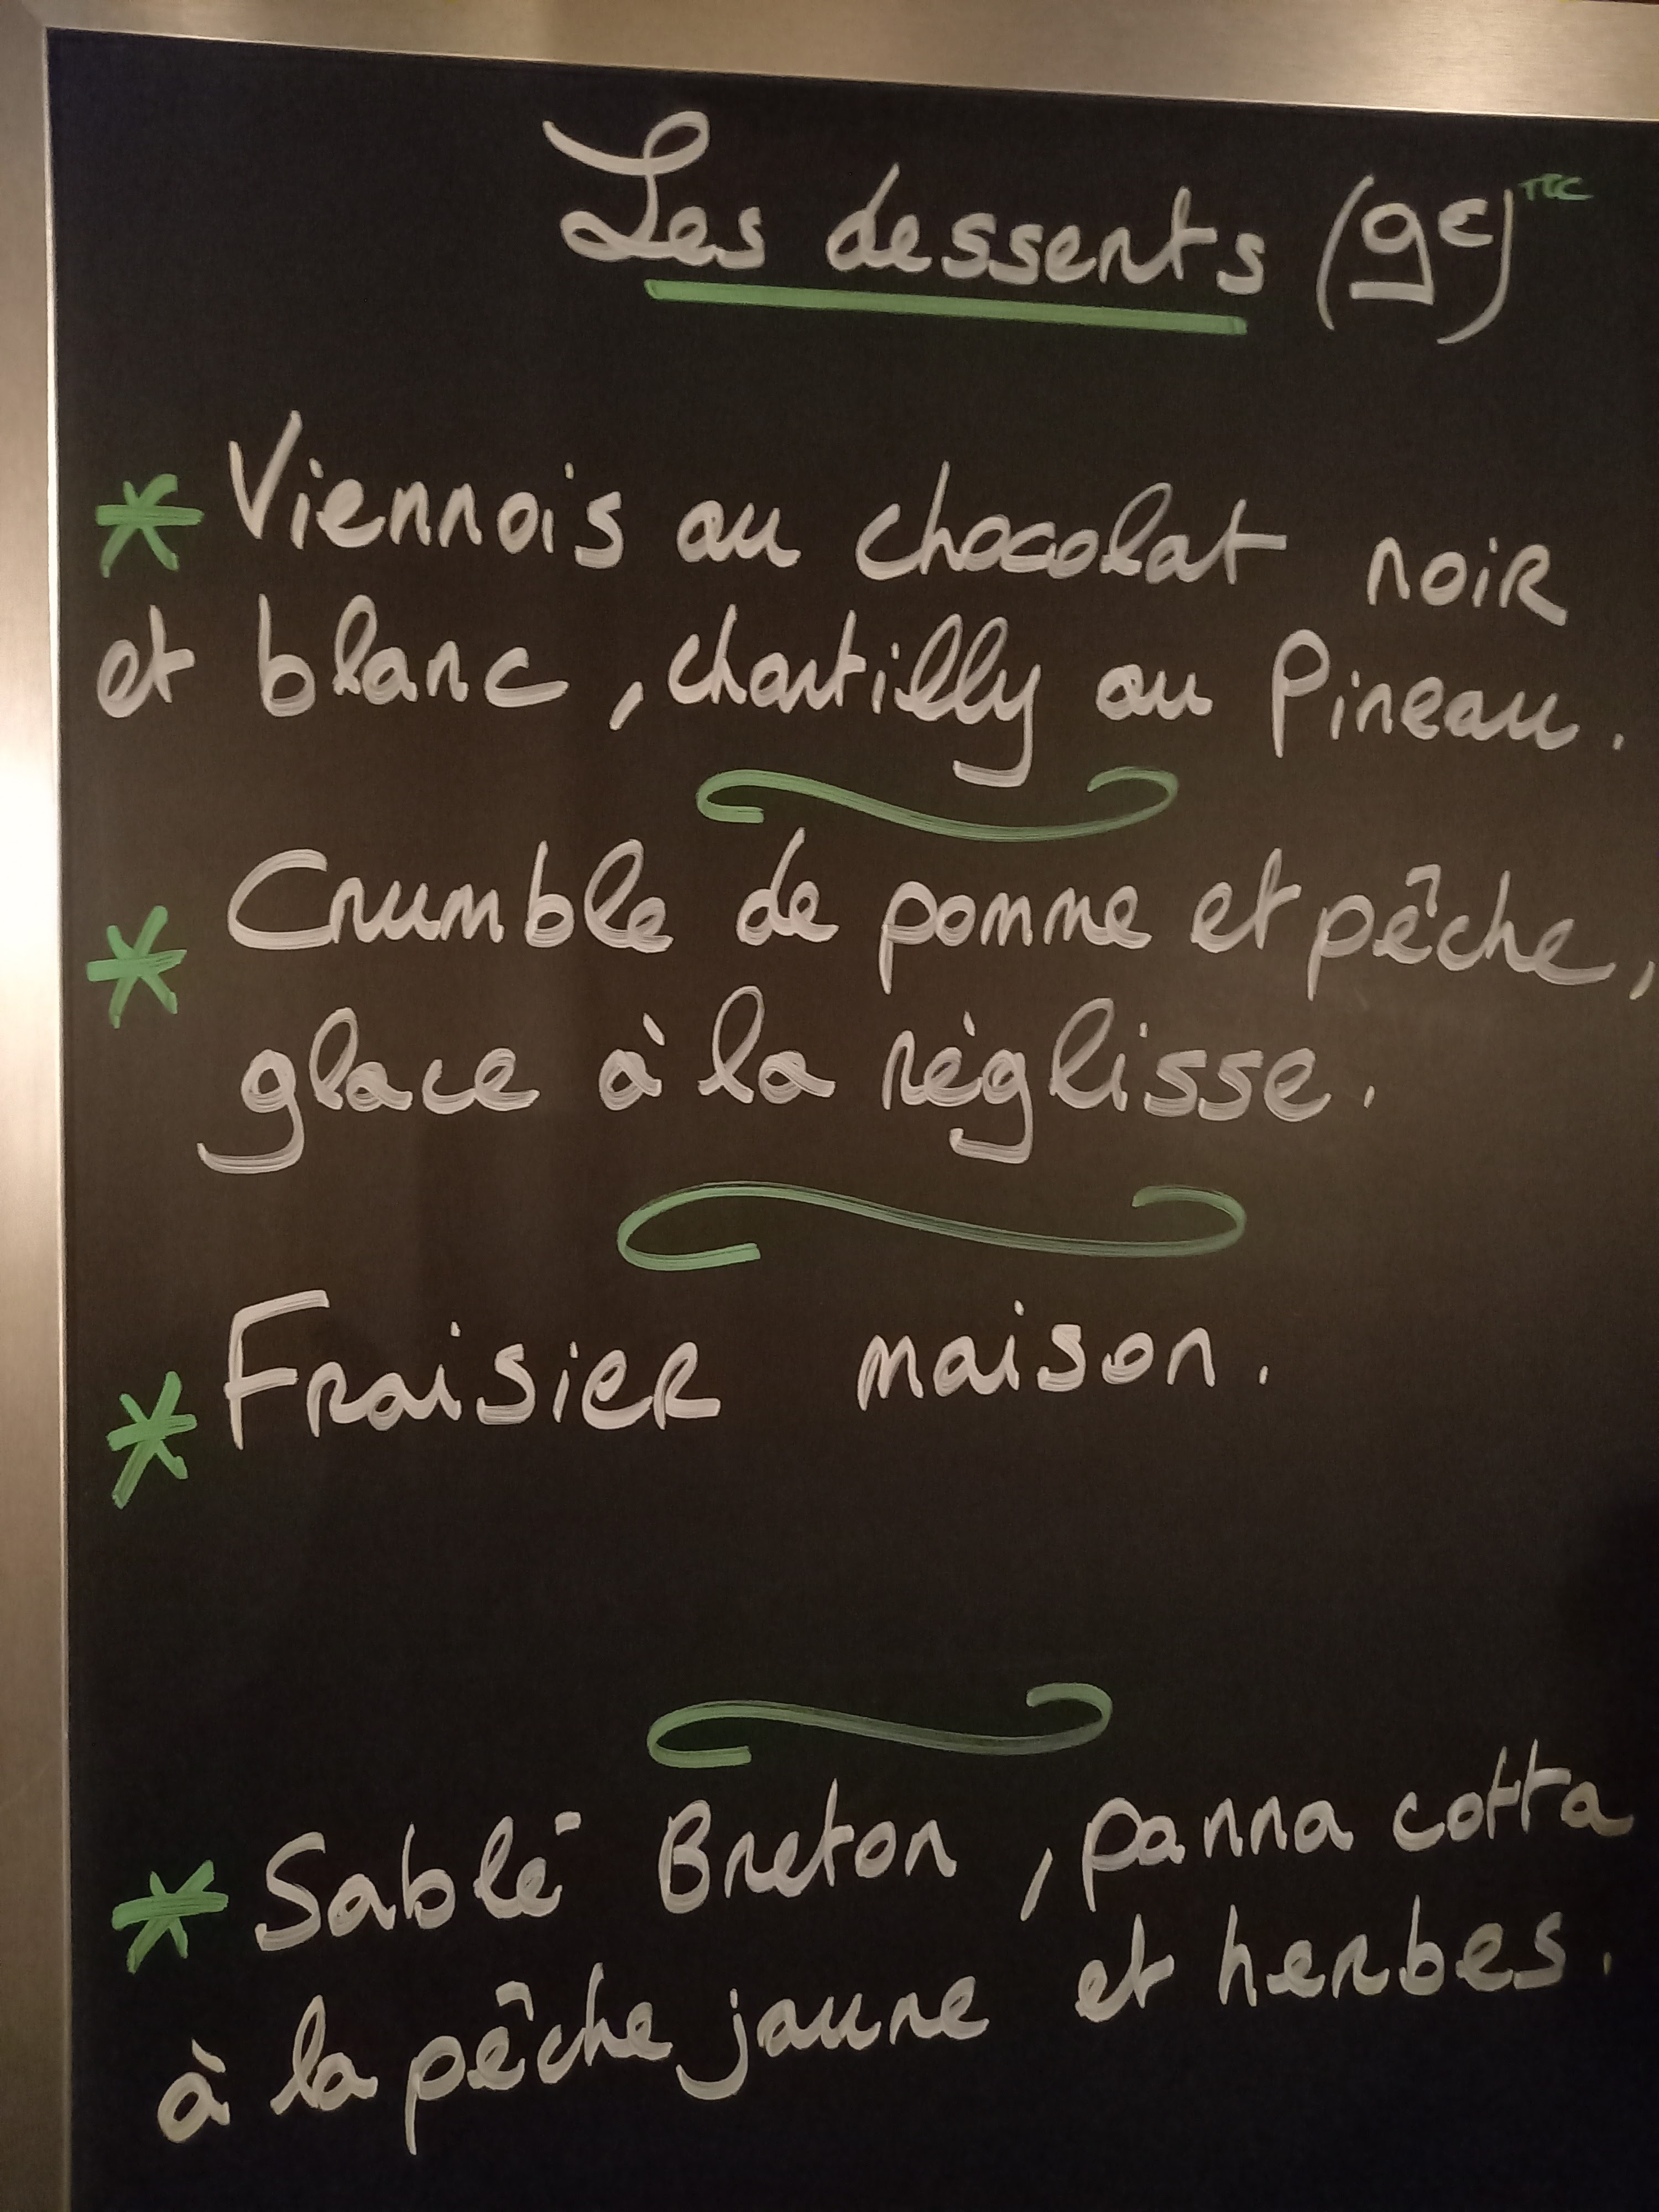 Les desserts (9€) TTC
* Viennois au chocolat noir
et blanc, chantilly au Pineau.
* Crumble de pomme et pêche,
glace à la réglisse.
* Fraisier maison.
* Sablé Breton, panna cotta
à la pêche jaune et herbes.